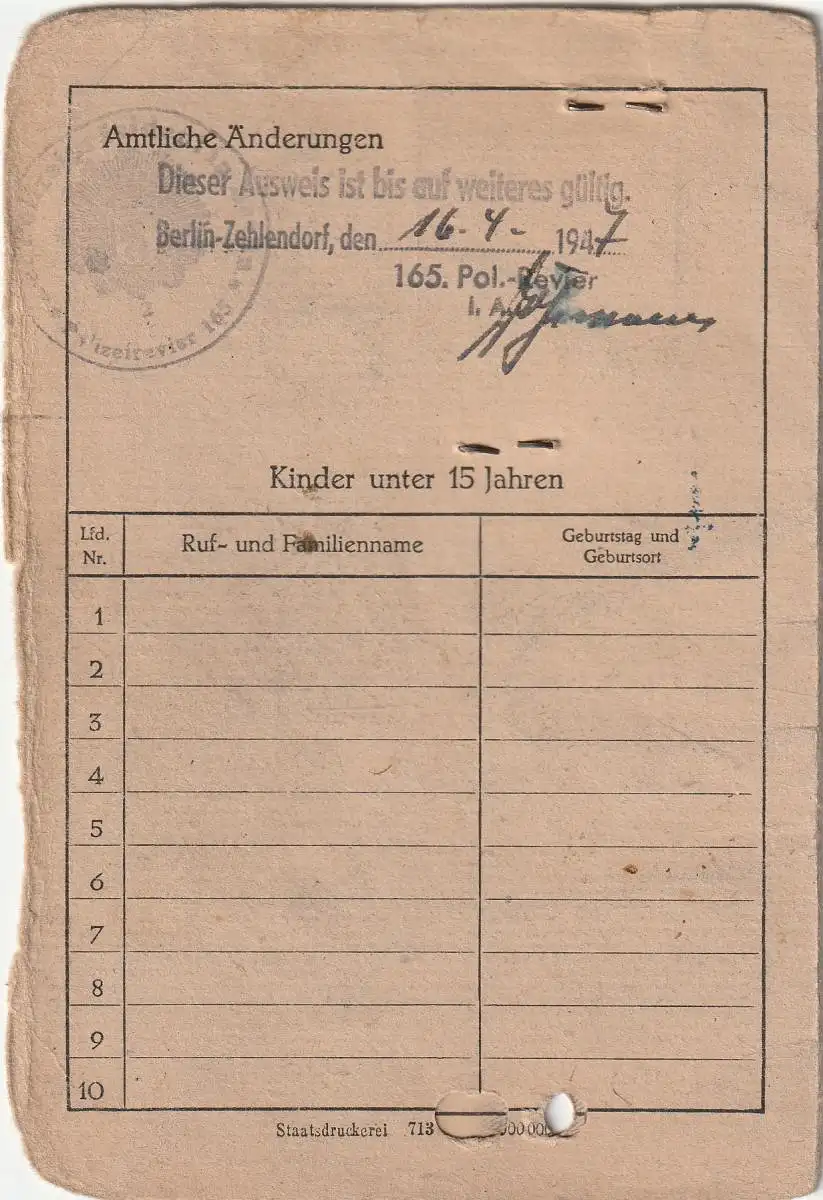 Amtliche Änderungen
Dieser Ausweis ist bis auf weiteres gültig.
Berlin-Zehlendorf, den 16-4- 1947
165. Pol.-Revier
I. A.
Polizeirevier 165
Kinder unter 15 Jahren
Lfd. Nr.
Ruf- und Familienname
Geburtstag und
Geburtsort
1
2
3
4
5
6
7
8
9
10
Staatsdruckerei 713